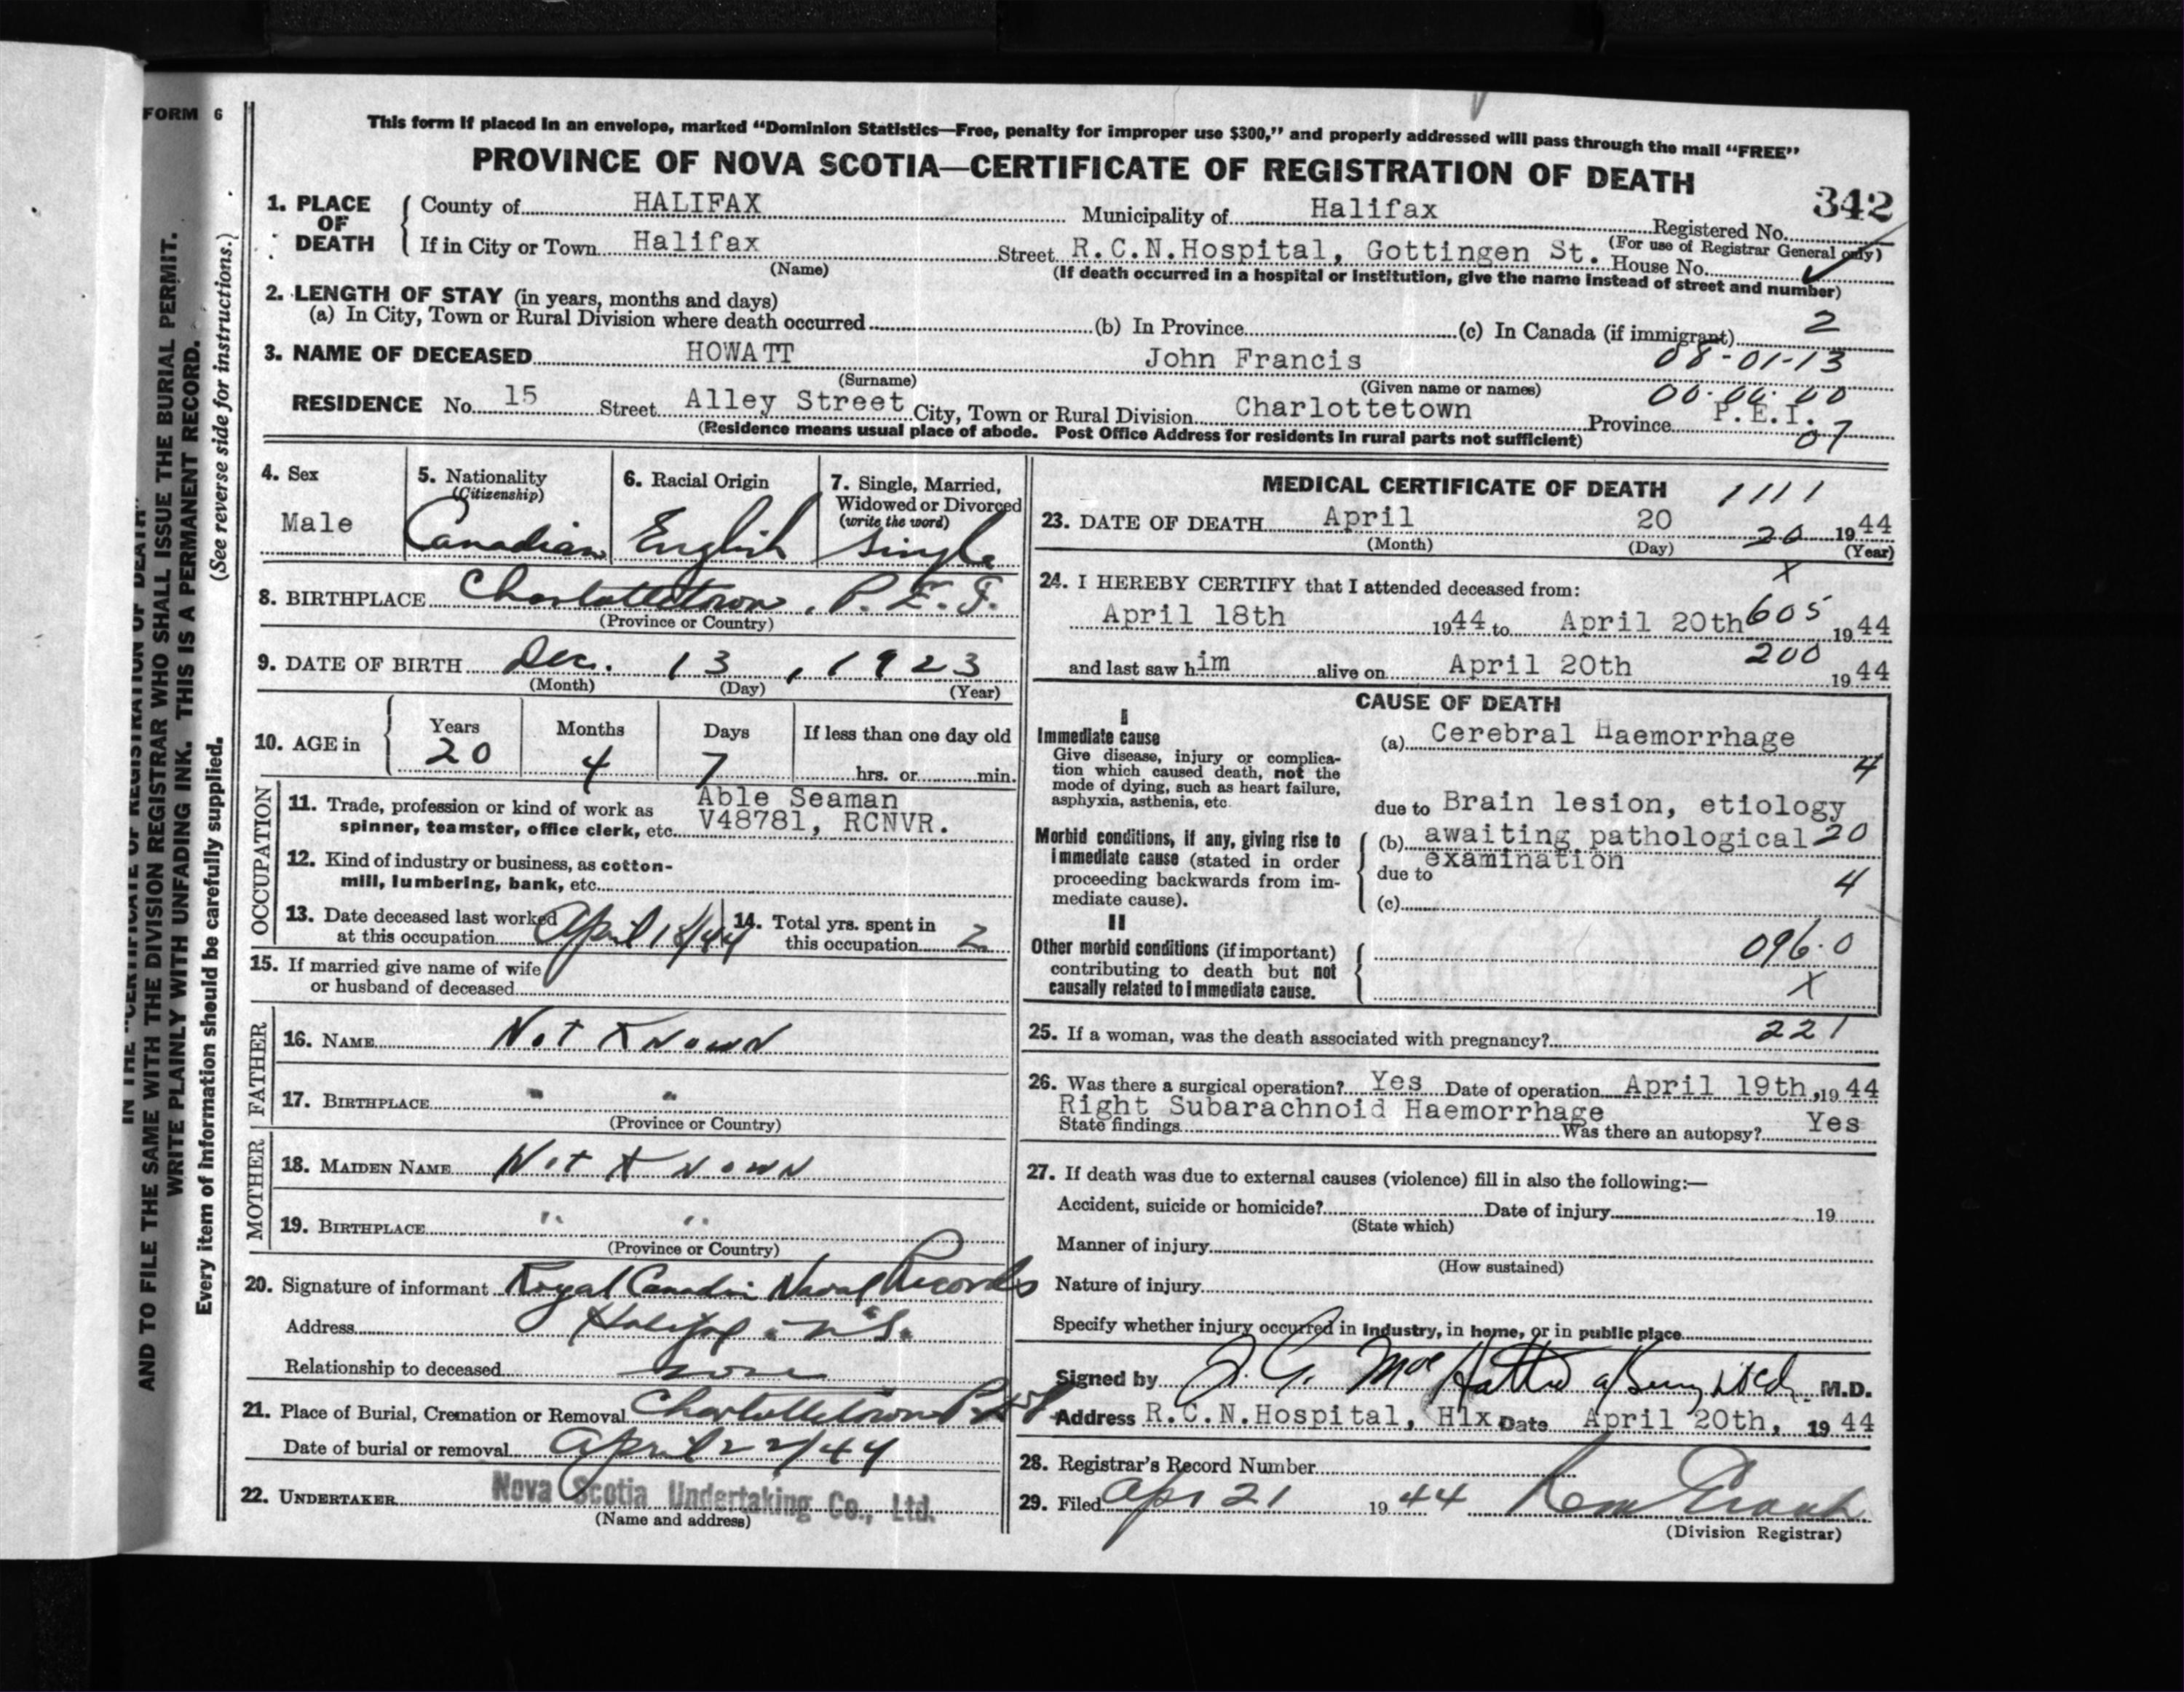 FORM 6
This form if placed in an envelope, marked “Dominion Statistics—Free, penalty for improper use $300,” and properly addressed will pass through the mail “FREE”
PROVINCE OF NOVA SCOTIA—CERTIFICATE OF REGISTRATION OF DEATH
342
1. PLACE OF DEATH
County of HALIFAX Municipality of Halifax Registered No.
(For use of Registrar General only)
If in City or Town Halifax Street R.C.N.Hospital, Gottingen St. House No.
(Name) (If death occurred in a hospital or institution, give the name instead of street and number)
2. LENGTH OF STAY (in years, months and days)
(a) In City, Town or Rural Division where death occurred (b) In Province (c) In Canada (if immigrant) 2
3. NAME OF DECEASED HOWATT John Francis 08-01-13
(Surname) (Given name or names) 00.00.00
RESIDENCE No. 15 Street Alley Street City, Town or Rural Division Charlottetown Province P.E.I. 07
(Residence means usual place of abode. Post Office Address for residents in rural parts not sufficient)
4. Sex Male
5. Nationality (Citizenship) Canadian
6. Racial Origin English
7. Single, Married, Widowed or Divorced (write the word) Single
8. BIRTHPLACE Charlottetown, P.E.I.
(Province or Country)
9. DATE OF BIRTH Dec. 13, 1923
(Month) (Day) (Year)
10. AGE in Years 20 Months 4 Days 7 If less than one day old hrs. or min.
OCCUPATION
11. Trade, profession or kind of work as spinner, teamster, office clerk, etc. Able Seaman
V48781, RCNVR.
12. Kind of industry or business, as cotton-
mill, lumbering, bank, etc.
13. Date deceased last worked at this occupation April 18/44
14. Total yrs. spent in this occupation 2
15. If married give name of wife
or husband of deceased
FATHER
16. NAME Not Known
17. BIRTHPLACE " "
(Province or Country)
MOTHER
18. MAIDEN NAME Not Known
19. BIRTHPLACE " "
(Province or Country)
20. Signature of informant Royal Canadin Naval Records
Address Halifax. N.S.
Relationship to deceased none
21. Place of Burial, Cremation or Removal Charlottetown P.E.I
Date of burial or removal April 22/44
22. UNDERTAKER Nova Scotia Undertaking Co., Ltd.
(Name and address)
MEDICAL CERTIFICATE OF DEATH 1111
23. DATE OF DEATH April 20 20 1944
(Month) (Day) (Year)
24. I HEREBY CERTIFY that I attended deceased from: X
April 18th 1944 to April 20th 605 1944
and last saw him alive on April 20th 200 1944
CAUSE OF DEATH
I
Immediate cause
Give disease, injury or complica-
tion which caused death, not the
mode of dying, such as heart failure,
asphyxia, asthenia, etc.
(a) Cerebral Haemorrhage 4
due to Brain lesion, etiology
Morbid conditions, if any, giving rise to
immediate cause (stated in order
proceeding backwards from im-
mediate cause).
(b) awaiting pathological 20
examination
due to 4
(c)
II
Other morbid conditions (if important)
contributing to death but not
causally related to immediate cause.
096.0
X
25. If a woman, was the death associated with pregnancy? 221
26. Was there a surgical operation? Yes Date of operation April 19th, 1944
Right Subarachnoid Haemorrhage
State findings Was there an autopsy? Yes
27. If death was due to external causes (violence) fill in also the following:—
Accident, suicide or homicide? Date of injury 19
(State which)
Manner of injury
(How sustained)
Nature of injury
Specify whether injury occurred in industry, in home, or in public place
Signed by M.D.
Address R.C.N.Hospital, Hlx Date April 20th, 1944
28. Registrar's Record Number
29. Filed Apr 21 1944
(Division Registrar)
IN THE "CERTIFICATE OF REGISTRATION OF DEATH"
AND TO FILE THE SAME WITH THE DIVISION REGISTRAR WHO SHALL ISSUE THE BURIAL PERMIT.
WRITE PLAINLY WITH UNFADING INK. THIS IS A PERMANENT RECORD.
Every item of information should be carefully supplied. (See reverse side for instructions.)